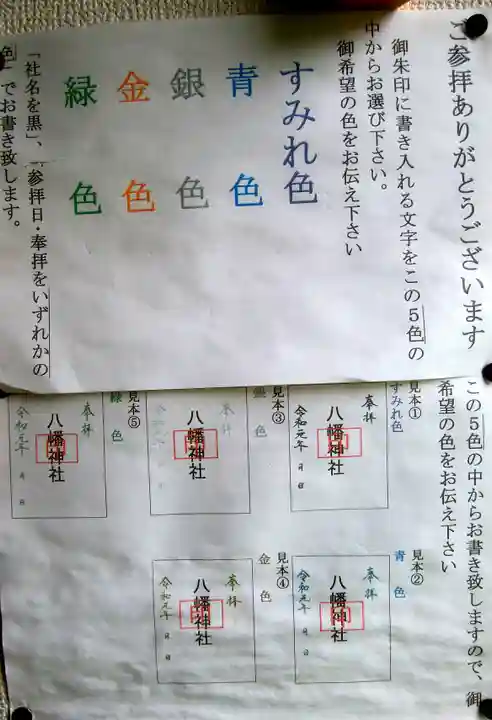 ご参拝ありがとうございます
御朱印に書き入れる文字をこの5色の
中からお選び下さい。
御希望の色をお伝え下さい
すみれ色
青色
銀色
金色
緑色
「社名を黒」、「参拝日・奉拝をいずれかの
色」でお書き致します。
この5色の中からお書き致しますので、御
希望の色をお伝え下さい
見本①
すみれ色
奉拝
八幡神社
令和元年 月 日
見本②
青色
奉拝
八幡神社
令和元年 月 日
見本③
銀色
奉拝
八幡神社
見本④
金色
奉拝
八幡神社
令和元年 月 日
見本⑤
緑色
奉拝
八幡神社
令和元年 月 日